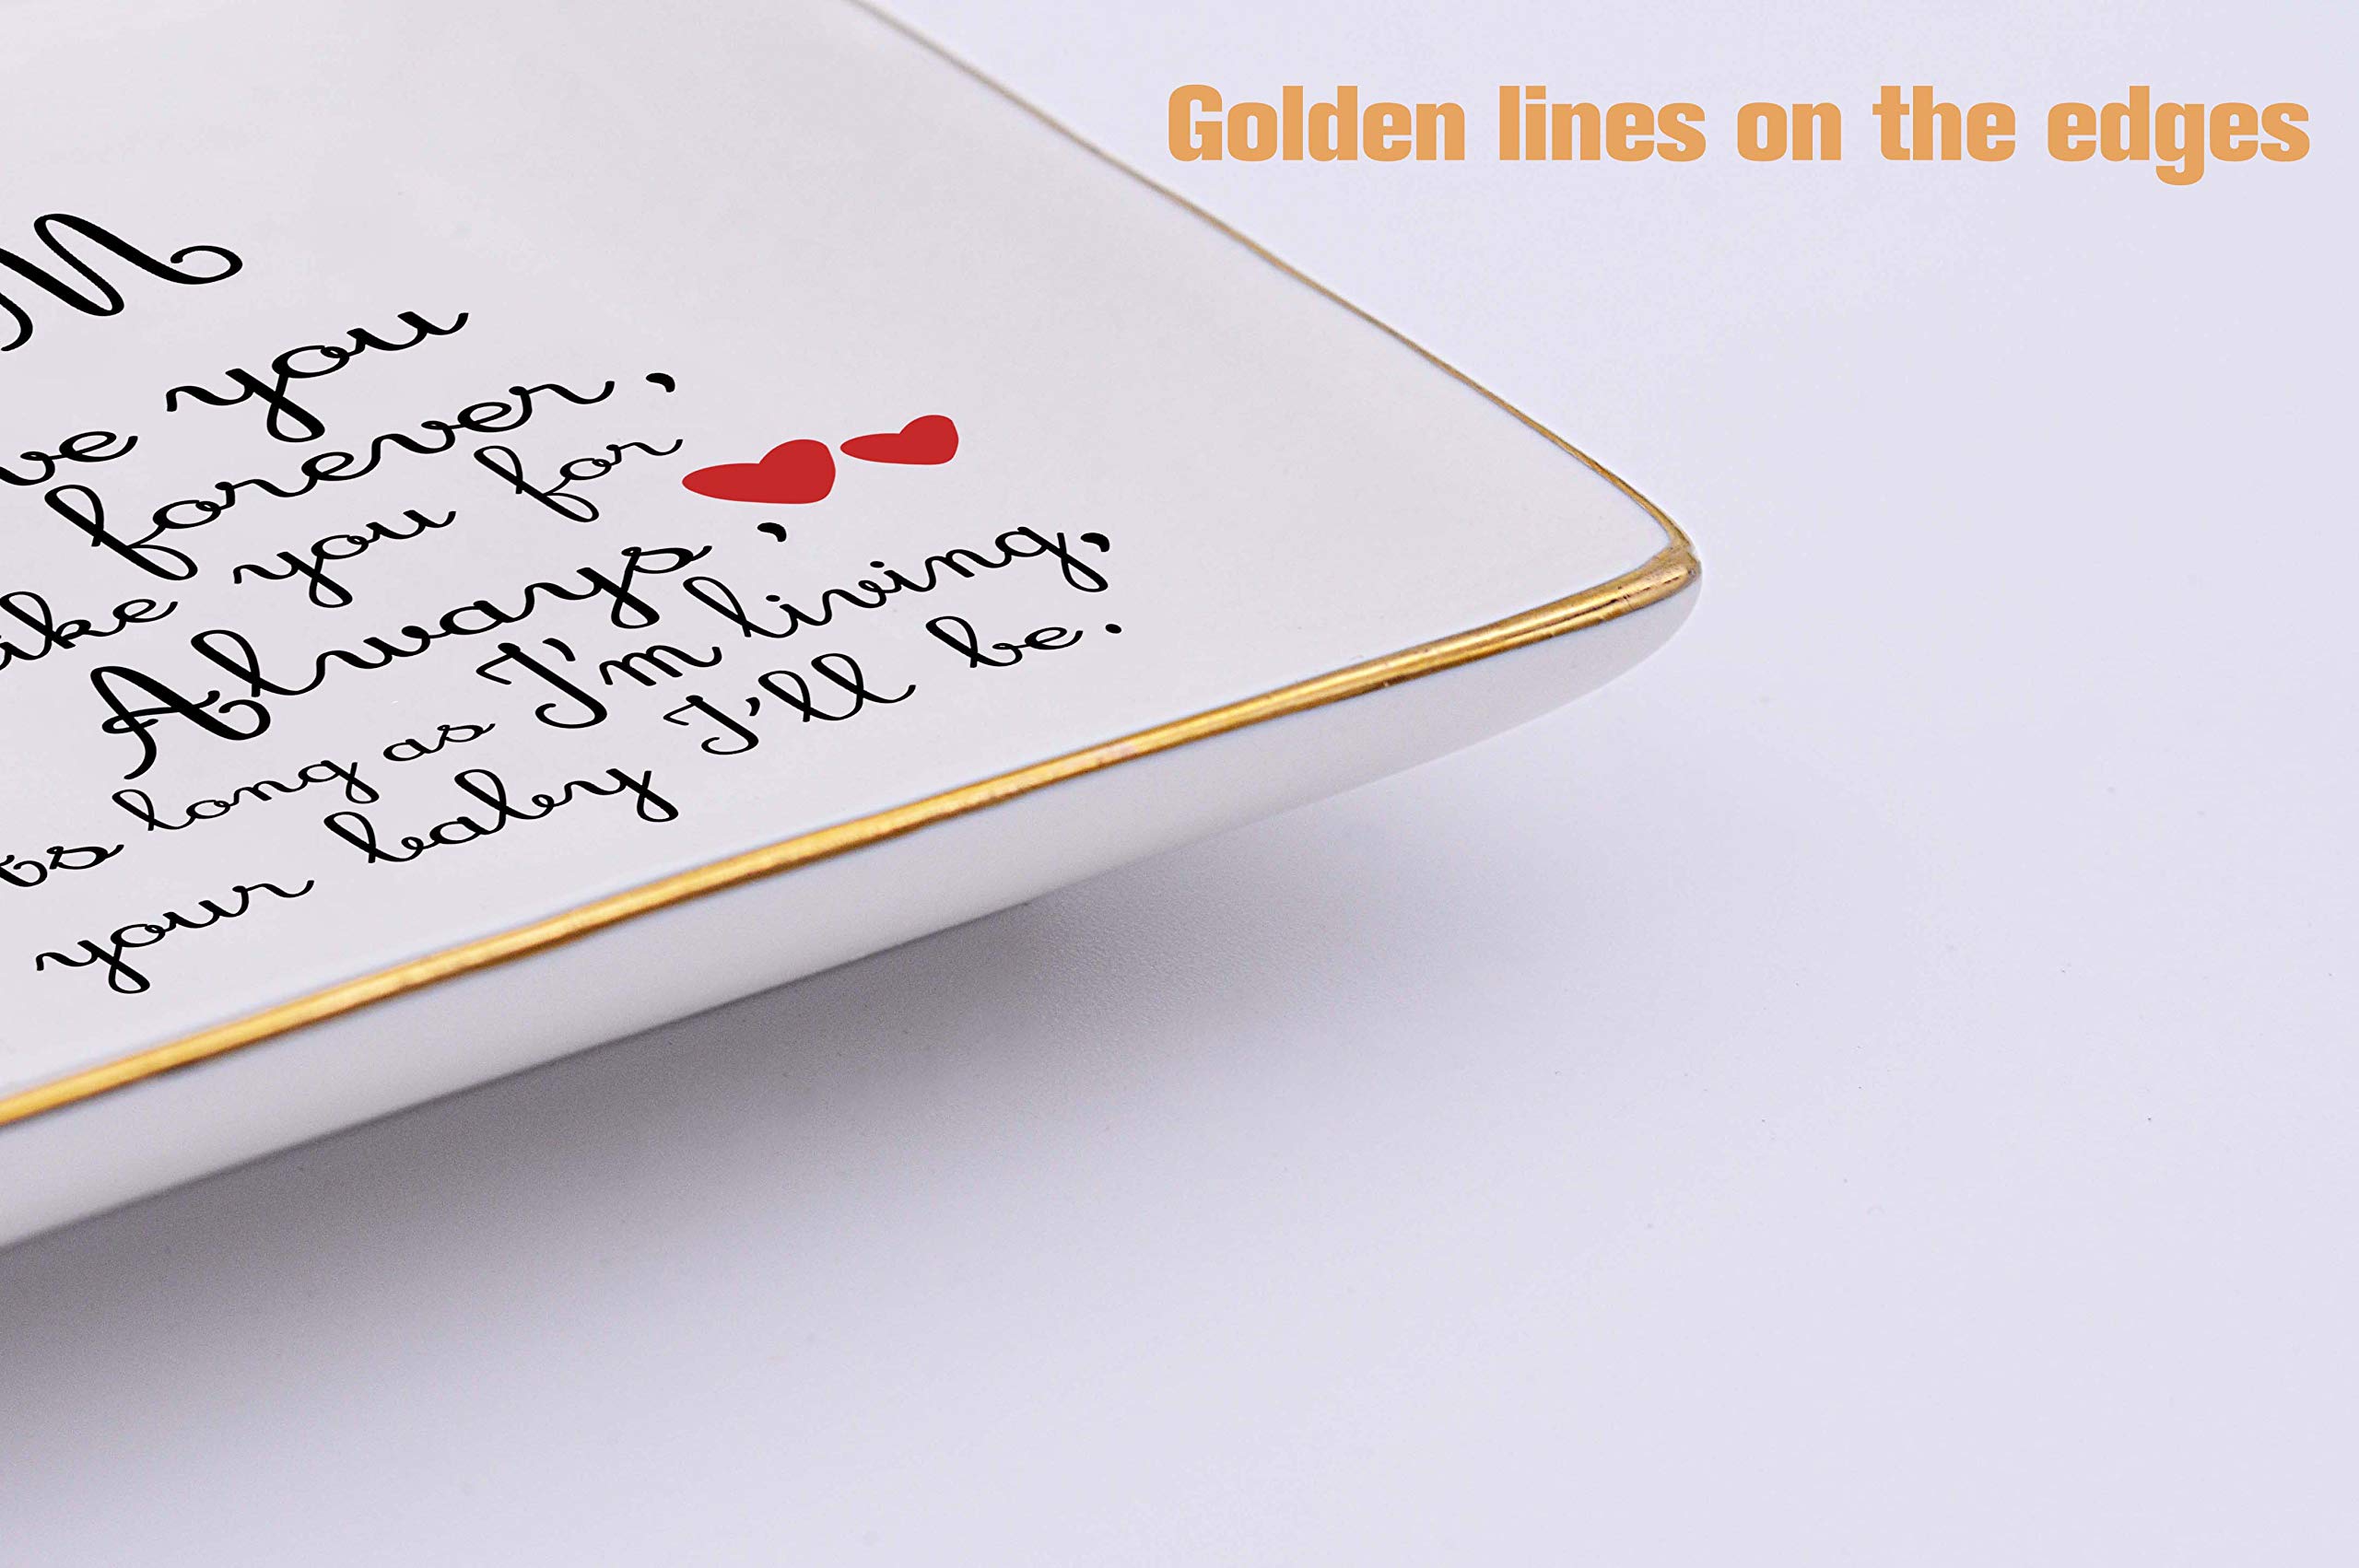 Golden lines on the edges
M
ve you
forever,
ike you for
Always,
as long as I'm living,
your baby I'll be.